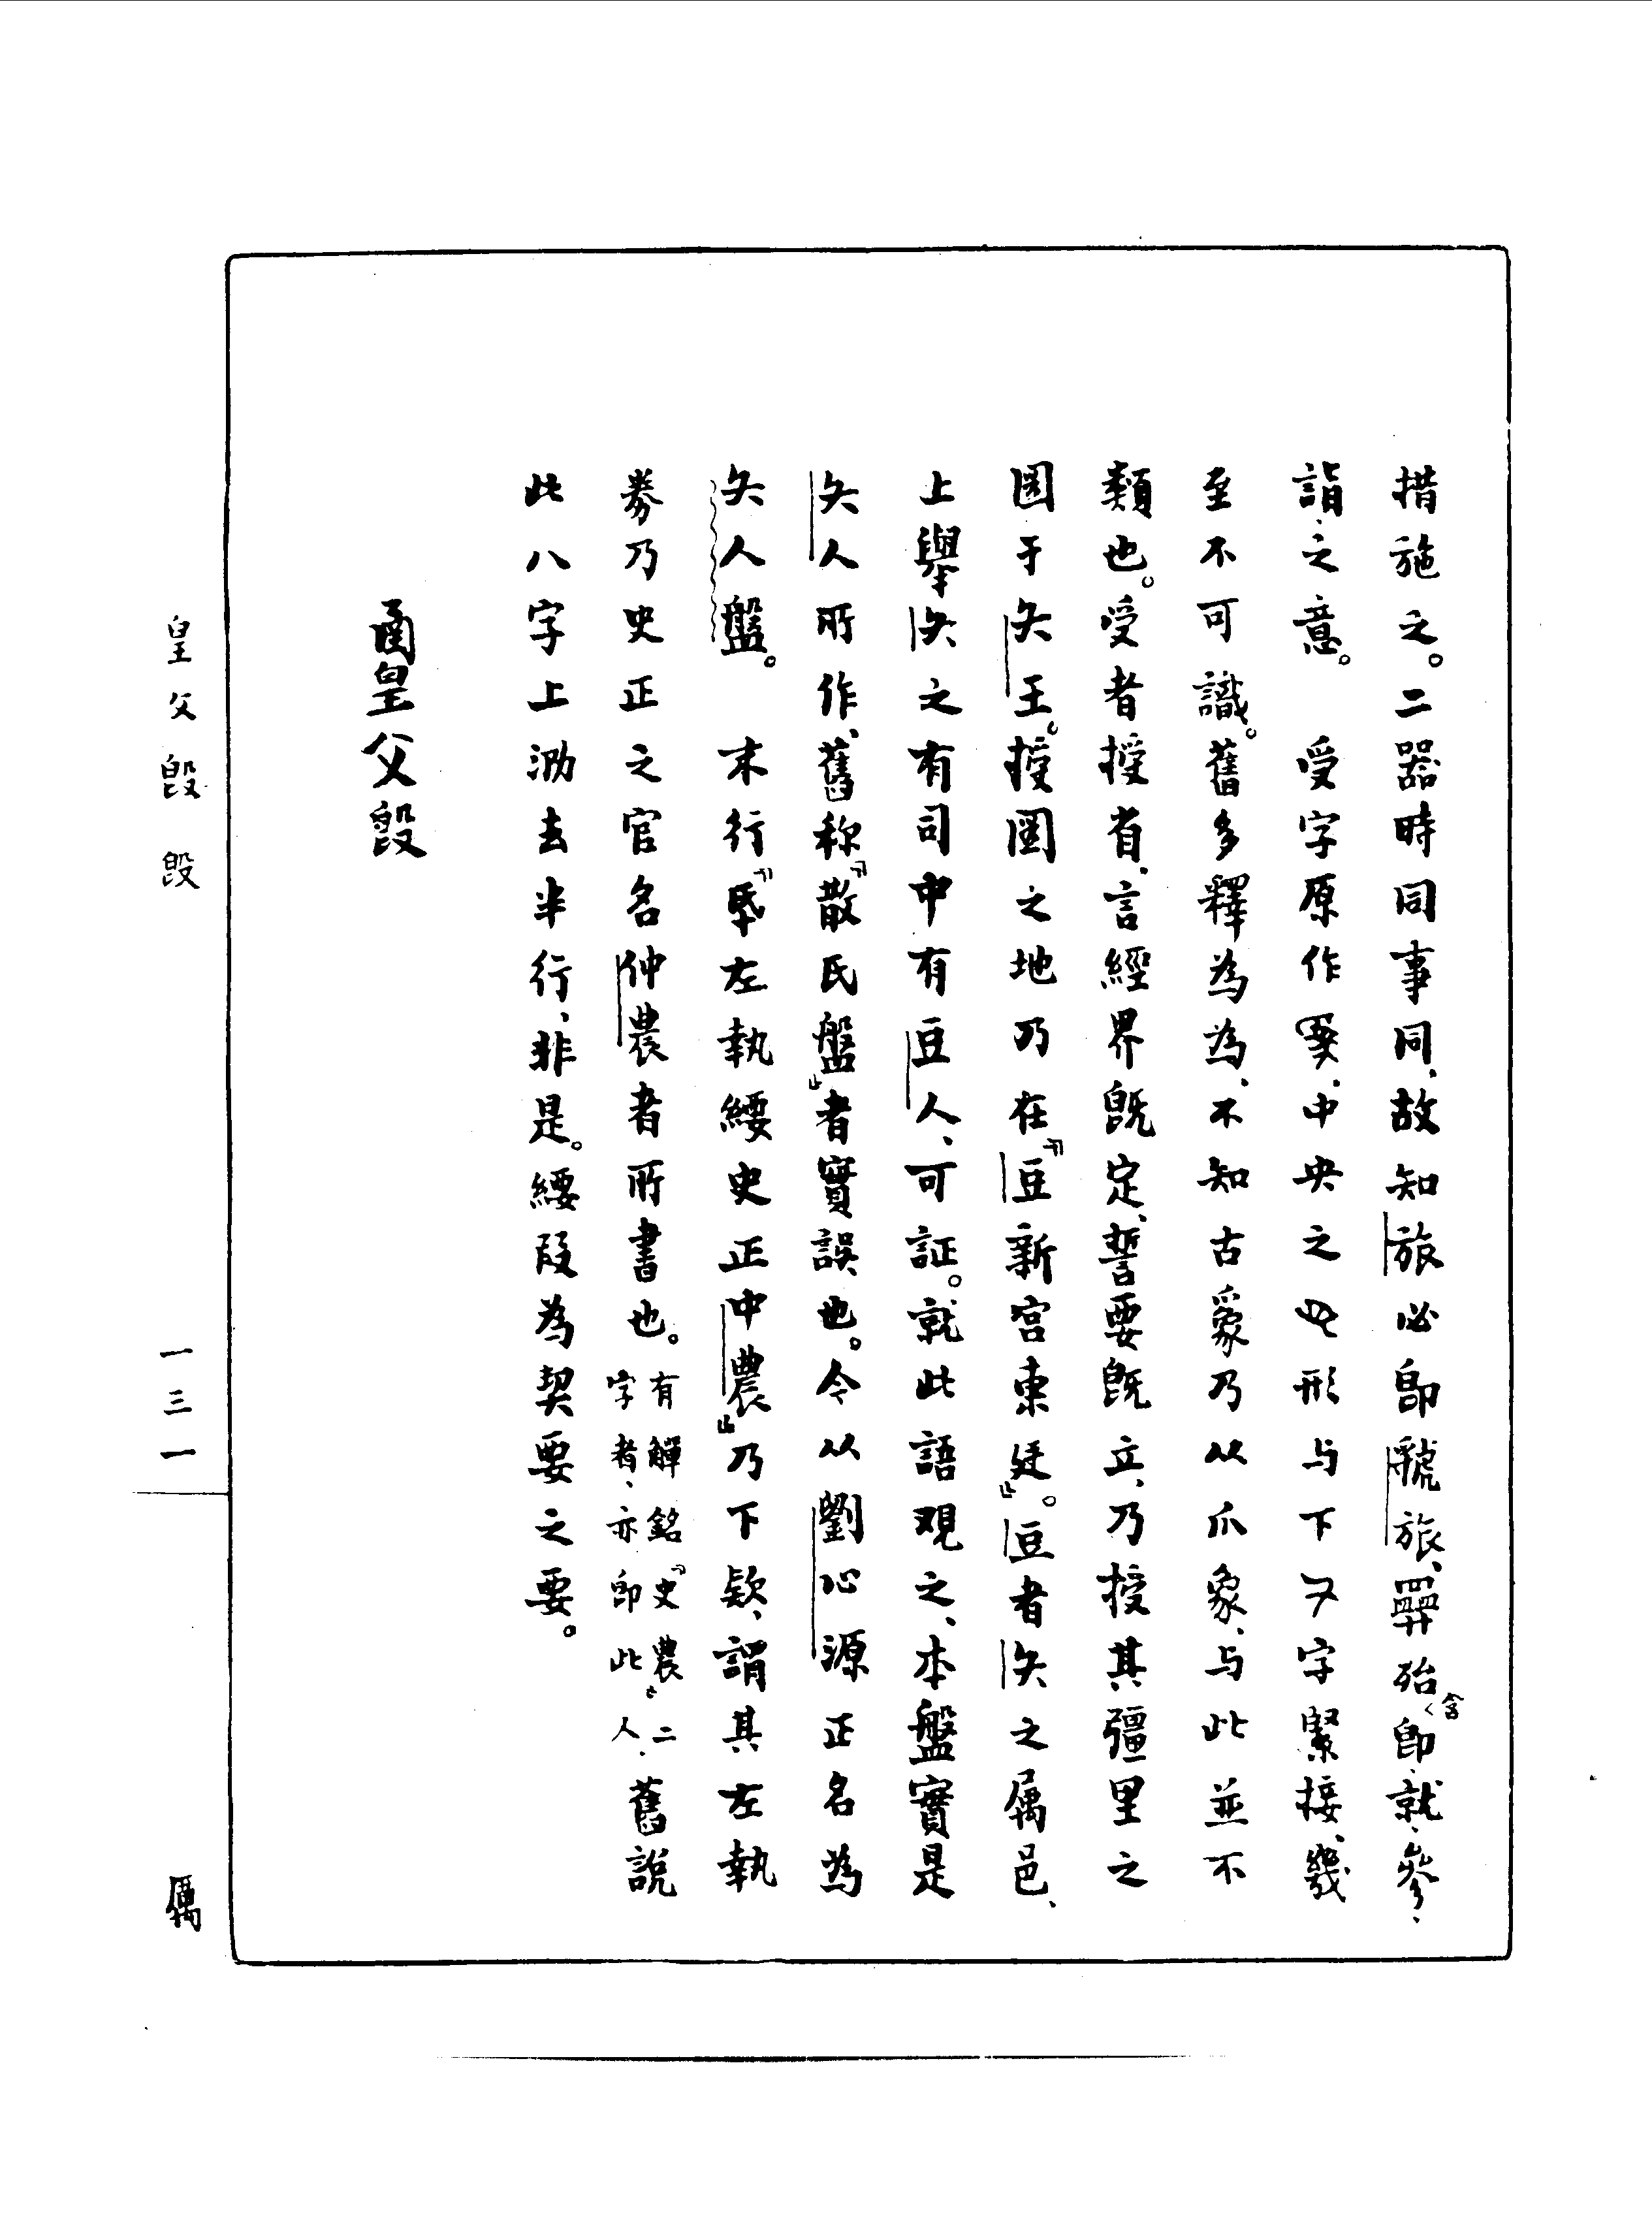 措施之。二器時同事同、故知旅必即虢旅、𤔲殆含即、就、參、
詣、之意。　受字原作、中央之形与下又字緊接、幾
至不可識。舊多釋為為、不知古象乃从爪象、与此並不
類也。受者授省、言經界既定、誓要既立、乃授其疆里之
圖于夨王。授圖之地乃在『豆新宮東廷』。豆者夨之属邑、
上舉夨之有司中有豆人、可証。就此語观之、本盤實是
夨人所作、舊称『散氏盤』者實誤也。今从劉心源正名為
夨人盤。　末行『氒左執緮史正中農』乃下欵、謂其左執
券乃史正之官名仲農者所書也。有觶銘『史農』二字者、亦即此人、舊說
此八字上泐去半行、非是。緮叚為契要之要。
圅皇父𣪘
皇父𣪘𣪘
一三一
厲